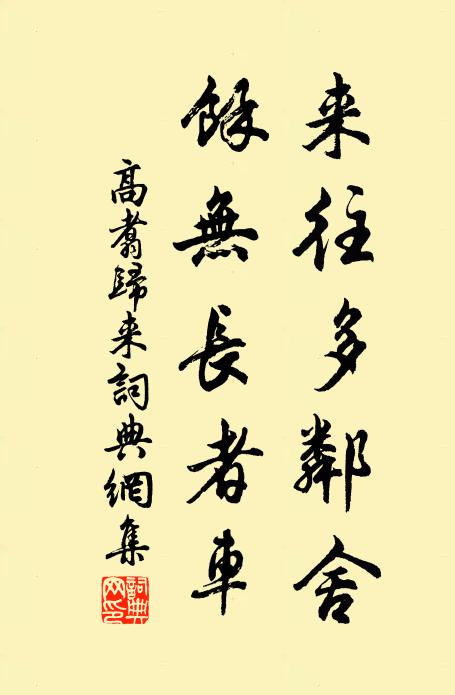 来往多鄰舍
餘無長者車
高翥歸来詞典網集
詞典网印